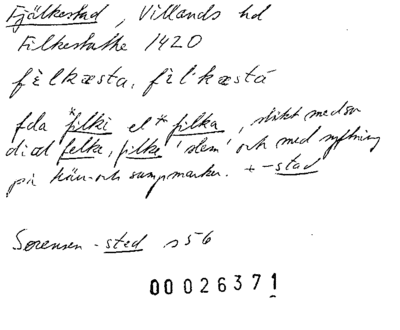 Fjälkestad, Villands hd
Filkestathe 1420
fìlkæsta, fìlkæstá
fda *filki el *filka, släkt med sv
dial felke, filke 'slem' och med syftning
på kärr- och sumpmarker. + -stad
Sørensen -sted s 56
00026371